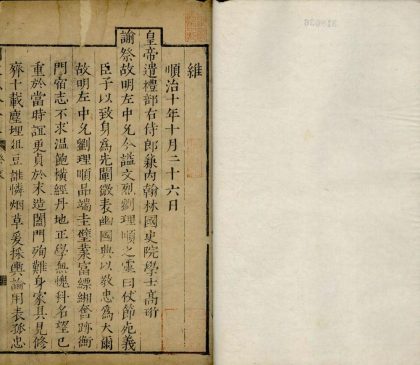 維
順治十年十月二十六日
皇帝遣禮部右侍郎兼內翰林國史院學士高珩
諭祭故明左中允今謚文烈劉理順之靈曰仗節死義
臣子分以致身為先闡微表幽國典以教忠為大爾
故明左中允劉理順品端圭璧業富縹緗奮跡衡
門宿志不求溫飽橫經丹地正學無愧科名望已
重於當時誼更貞於末造闔門殉難身家具見修
齊十載塵埋俎豆誰憐烟草爰採輿論用表孫忠